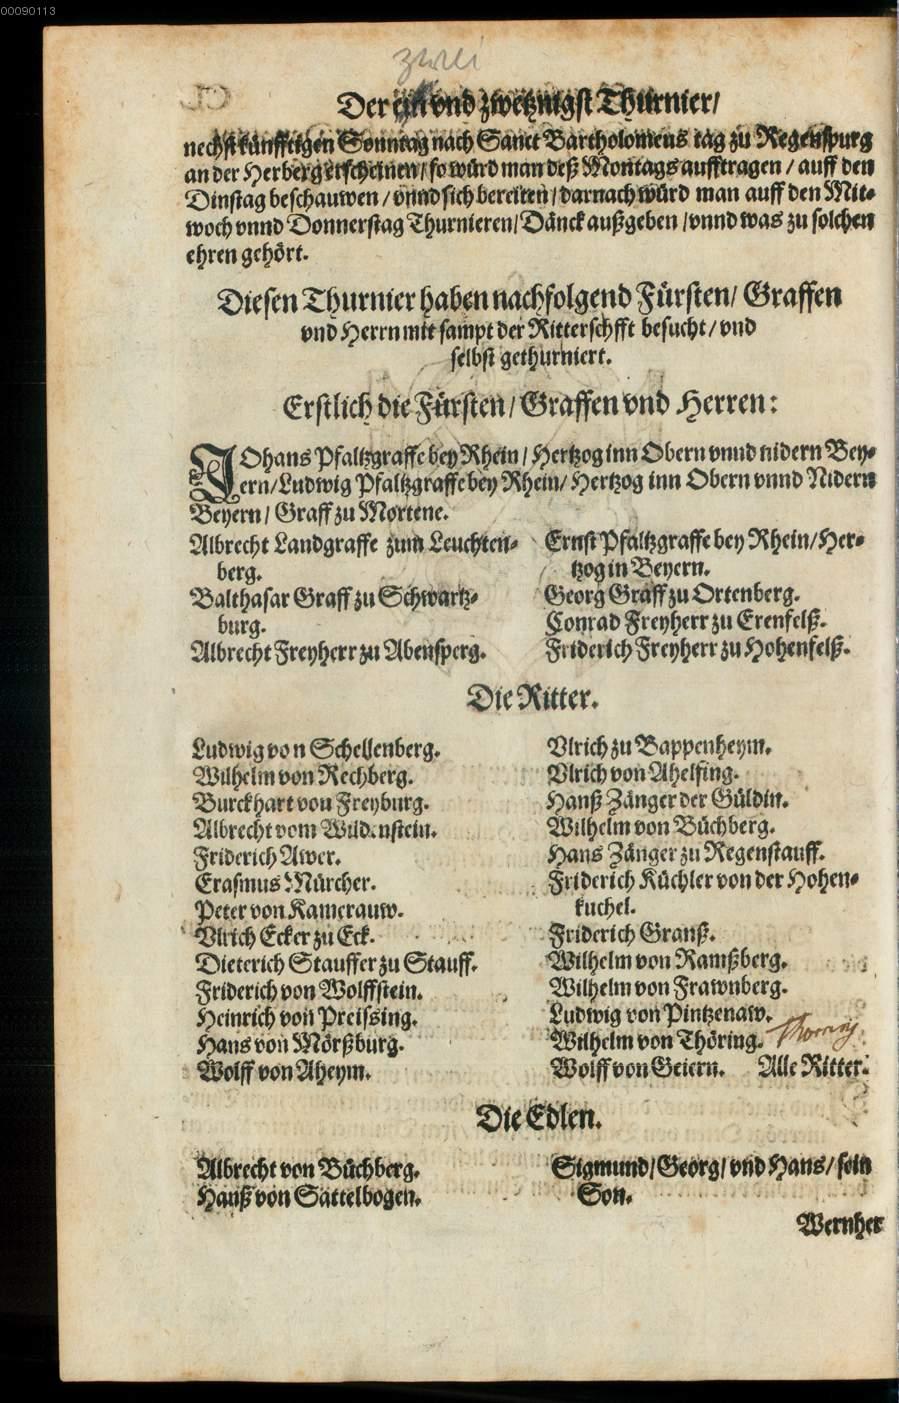 00090113
zwei
Der ein vnd zwetznigst Thurnier/
nechstkünfftigen Sonntag nach Sanct Bartholomeus tag zu Regenspurg
an der Herberg erscheinen/ so würd man deß Montags aufftragen/ auff den
Dinstag beschauwen/ vnnd sich bereiten/ darnach würd man auff den Mit-
woch vnnd Donnerstag Thurnieren/ Dänck außgeben/ vnnd was zu solchen
ehren gehört.
Diesen Thurnier haben nachfolgend Fürsten/ Graffen
vnd Herrn mit sampt der Ritterschfft besucht/ vnd
selbst gethurniert.
Erstlich die Fürsten/ Graffen vnd Herren:
JOhans Pfaltzgraffe bey Rhein/ Hertzog inn Obern vnnd nidern Bey-
ern/ Ludwig Pfaltzgraffe bey Rhein/ Hertzog inn Obern vnnd Nidern
Beyern/ Graff zu Mortene.
Albrecht Landgraffe zum Leuchten-
berg.
Balthasar Graff zu Schwartz-
burg.
Albrecht Freyherr zu Abensperg.
Ernst Pfaltzgraffe bey Rhein/ Her-
tzog in Beyern.
Georg Graff zu Ortenberg.
Conrad Freyherr zu Erenfelß.
Friderich Freyherr zu Hohenfelß.
Die Ritter.
Ludwig von Schellenberg.
Wilhelm von Rechberg.
Burckhart von Freyburg.
Albrecht vom Wildenstein.
Friderich Awer.
Erasmus Mürcher.
Peter von Kamerauw.
Vlrich Ecker zu Eck.
Dieterich Stauffer zu Stauff.
Friderich von Wolffstein.
Heinrich von Preissing.
Hans von Mörßburg.
Wolff von Aheym.
Vlrich zu Bappenheym.
Vlrich von Ahelfing.
Hanß Zänger der Güldin.
Wilhelm von Büchberg.
Hans Zänger zu Regenstauff.
Friderich Küchler von der Hohen-
kuchel.
Friderich Granß.
Wilhelm von Ramßberg.
Wilhelm von Frawnberg.
Ludwig von Pintzenaw.
Wilhelm von Thöring. Thorring
Wolff von Geiern. Alle Ritter.
Die Edlen.
Albrecht von Büchberg.
Hanß von Sattelbogen.
Sigmund/ Georg/ vnd Hans/ sein
Son.
Wernher